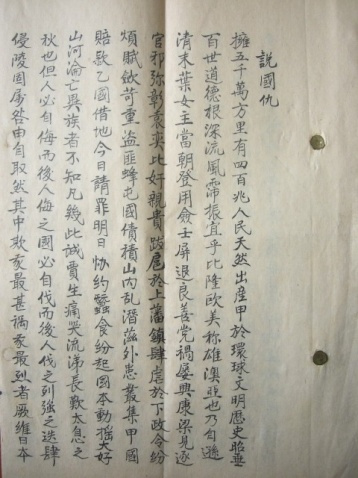 說國仇
擁五千萬方里有四百兆人民天然出産甲於環球文明歷史昭垂
百世道德根深流風霈振宜乎比隆歐美称雄澳亞也乃自遜
清末葉女主當朝登用僉士屏退良善党禍屡興康梁見逐
官邪弥彰袁奕比奸親貴跋扈於上藩鎮肆虐於下政令紛
煩賦歛苛重盗匪蜂屯國債積山内乱潛滋外患叢集甲國
賠欵乙國借地今日請罪明日協約蠶食紛起國本動摇大好
山河淪亡異族者不知凡幾此誠賈生痛哭流涕長歎太息之
秋也但人必自侮而後人侮之國必自伐而後人伐之列強之迭肆
侵陵固屬咎由自取然其中欺我最甚禍我最烈者厥維日本